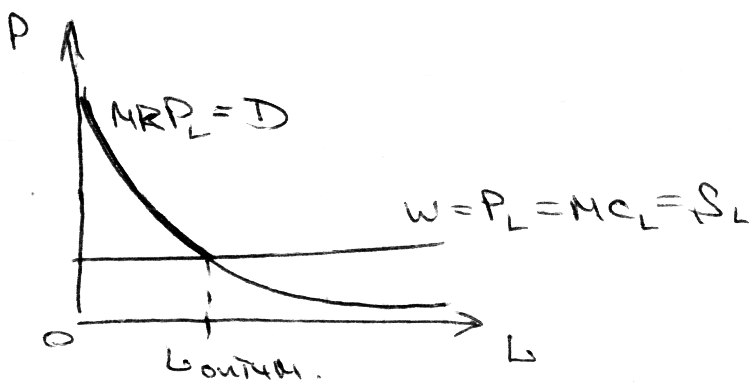 P
MRP_L = D
W = P_L = MC_L = S_L
O
L оптим.
L